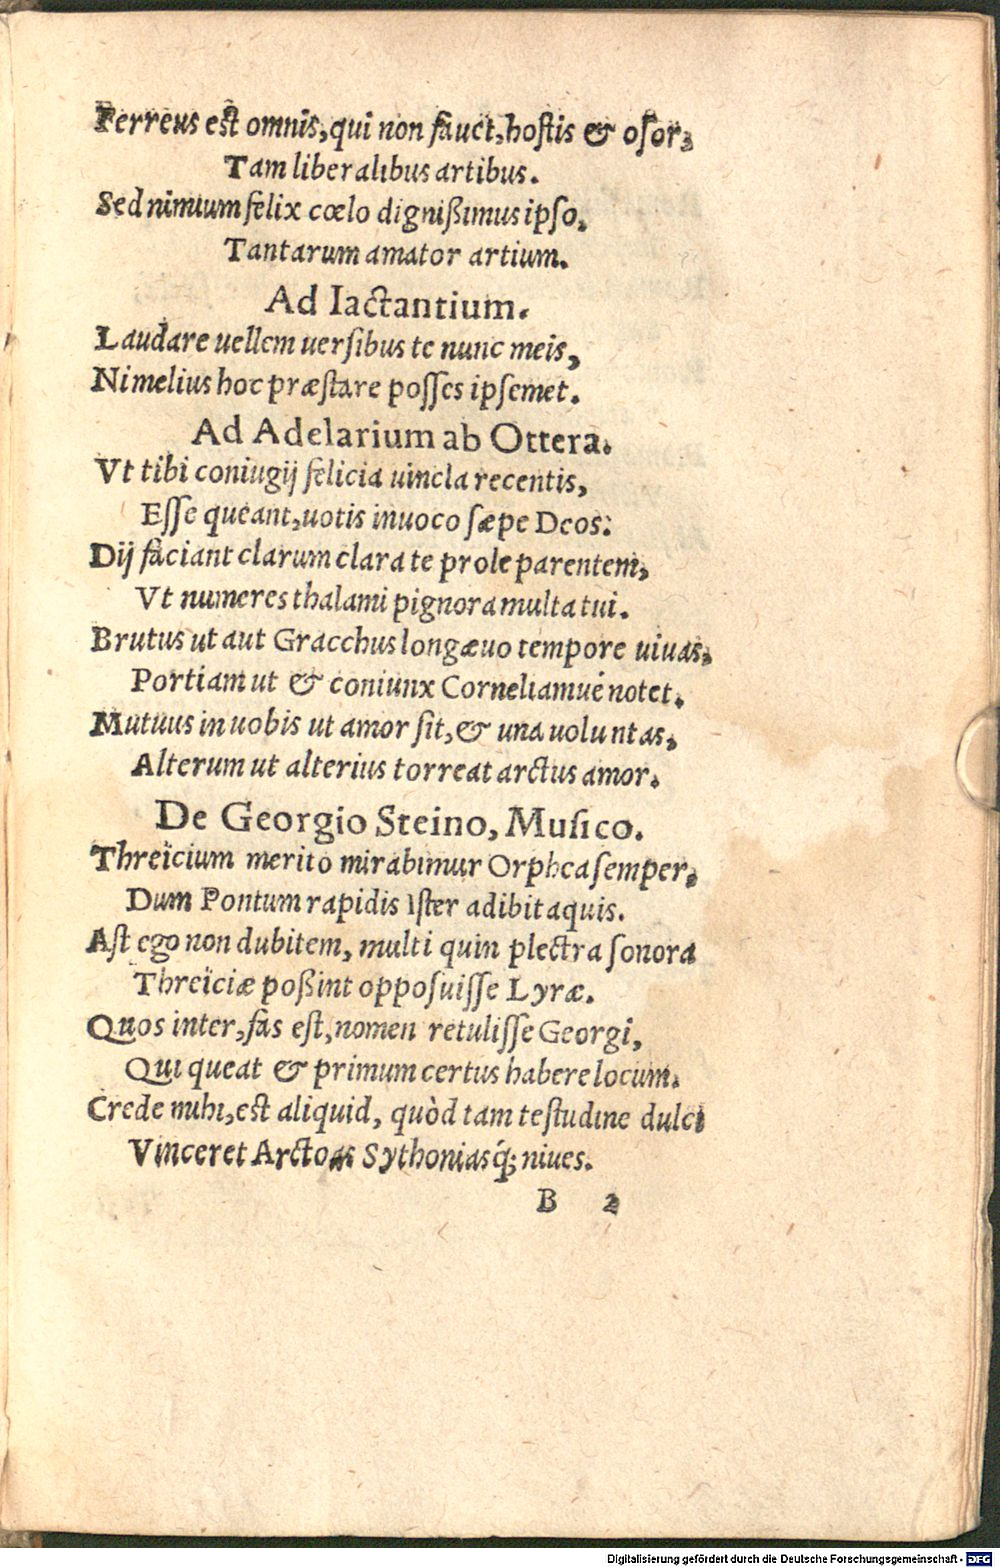 Ferreus est omnis, qui non fauet, hostis & osor,
Tam liberalibus artibus.
Sed nimium felix cœlo dignißimus ipso,
Tantarum amator artium.
Ad Iactantium.
Laudare uellem uersibus te nunc meis,
Ni melius hoc præstare posses ipsemet.
Ad Adelarium ab Ottera.
Vt tibi coniugij felicia uincla recentis,
Esse queant, uotis inuoco sæpe Deos:
Dij faciant clarum clara te prole parentem,
Vt numeres thalami pignora multa tui.
Brutus ut aut Gracchus longæuo tempore uiuas,
Portiam ut & coniunx Corneliamué notet.
Mutuus in uobis ut amor sit, & una uoluntas,
Alterum ut alterius torreat arctus amor.
De Georgio Steino, Musico.
Threïcium merito mirabimur Orphea semper,
Dum Pontum rapidis Ister adibit aquis.
Ast ego non dubitem, multi quin plectra sonora
Threïciæ poßint opposuisse Lyræ.
Quos inter, fas est, nomen retulisse Georgi,
Qui queat & primum certus habere locum.
Crede mihi, est aliquid, quòd tam testudine dulci
Vinceret Arctoas Sythoniasq́; niues.
B 2
Digitalisierung gefördert durch die Deutsche Forschungsgemeinschaft - DFG